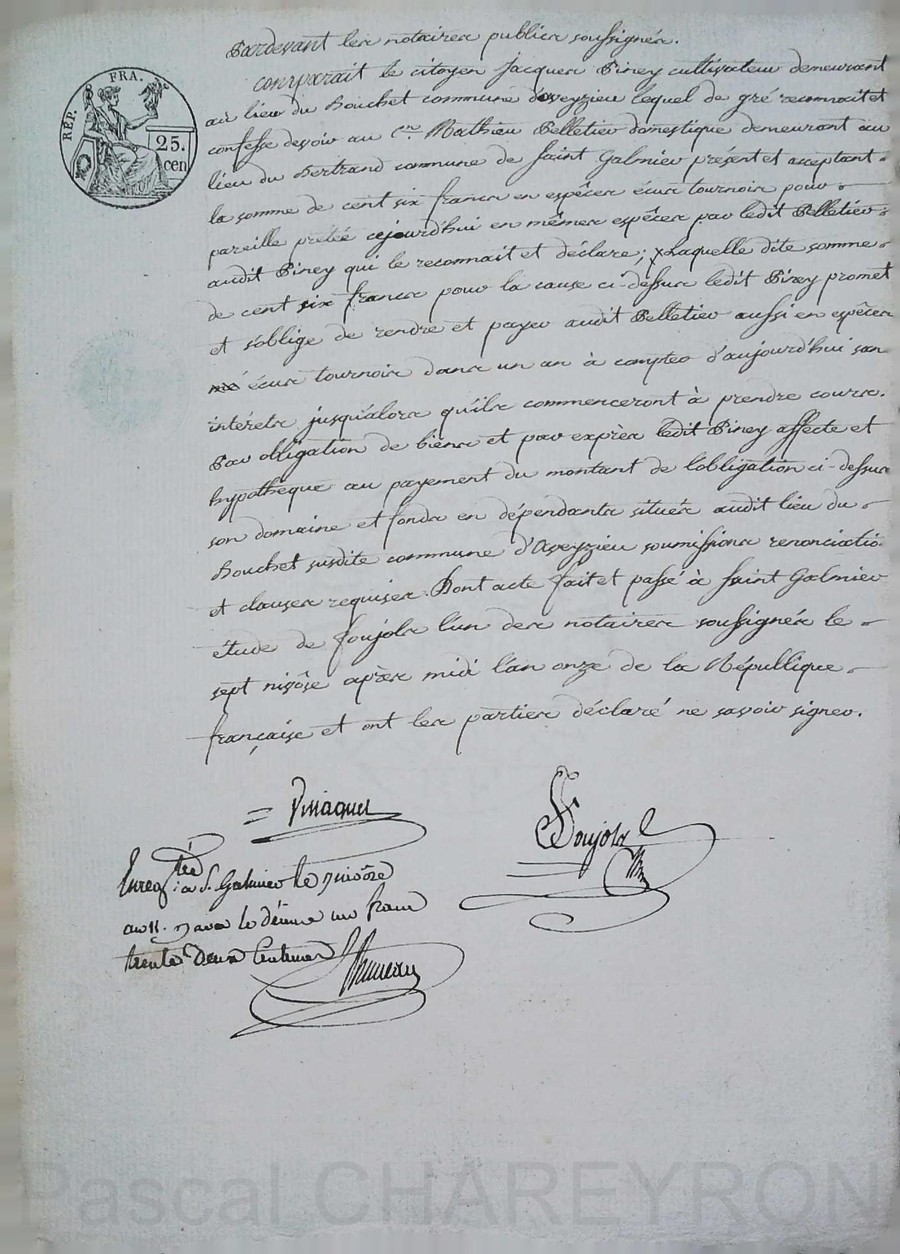 RÉP. FRA.
25.
cen
Pardevant les notaires publics soussignés.
Comparait le citoyen Jacques Piney cultivateur demeurant
au lieu du Bouchet commune d'aveyzieu lequel de gré reconnait et
confesse devoir au cen Mathieu Pelletier domestique demeurant au
lieu du Bertrand commune de Saint Galmier présent et acceptant
la somme de cent six francs en espêces écus tournois pour
pareille prêtée cejourd'hui en mêmes espêces par ledit Pelletier
audit Piney qui le reconnait et déclare; Laquelle dite somme
de cent six francs pour la cause ci-dessus ledit Piney promet
et s'oblige de rendre et payer audit Pelletier aussi en espêces
écus tournois dans un an à compter d'aujourd'hui san
intérets jusqu'alors qu'ils commenceront à prendre cours.
Par obligation de biens et par exprès ledit Piney affecte et
hypothèque au payement du montant de l'obligation ci-dessus
son domaine et fonds en dépendants situés audit lieu du
Bouchet susdite commune d'Aveyzieu soumissions renonciatio
et clauses requises. Dont acte fait et passé à Saint Galmier
étude de Soujols l'un des notaires soussignés le
sept nivôse après midi l'an onze de la République
française et ont les parties déclaré ne savoir signer.
Soujols
Enregtré à St. Galmier le nivôse
an 11. le décime un franc
trente deux Centimes
Pascal CHAREYRON